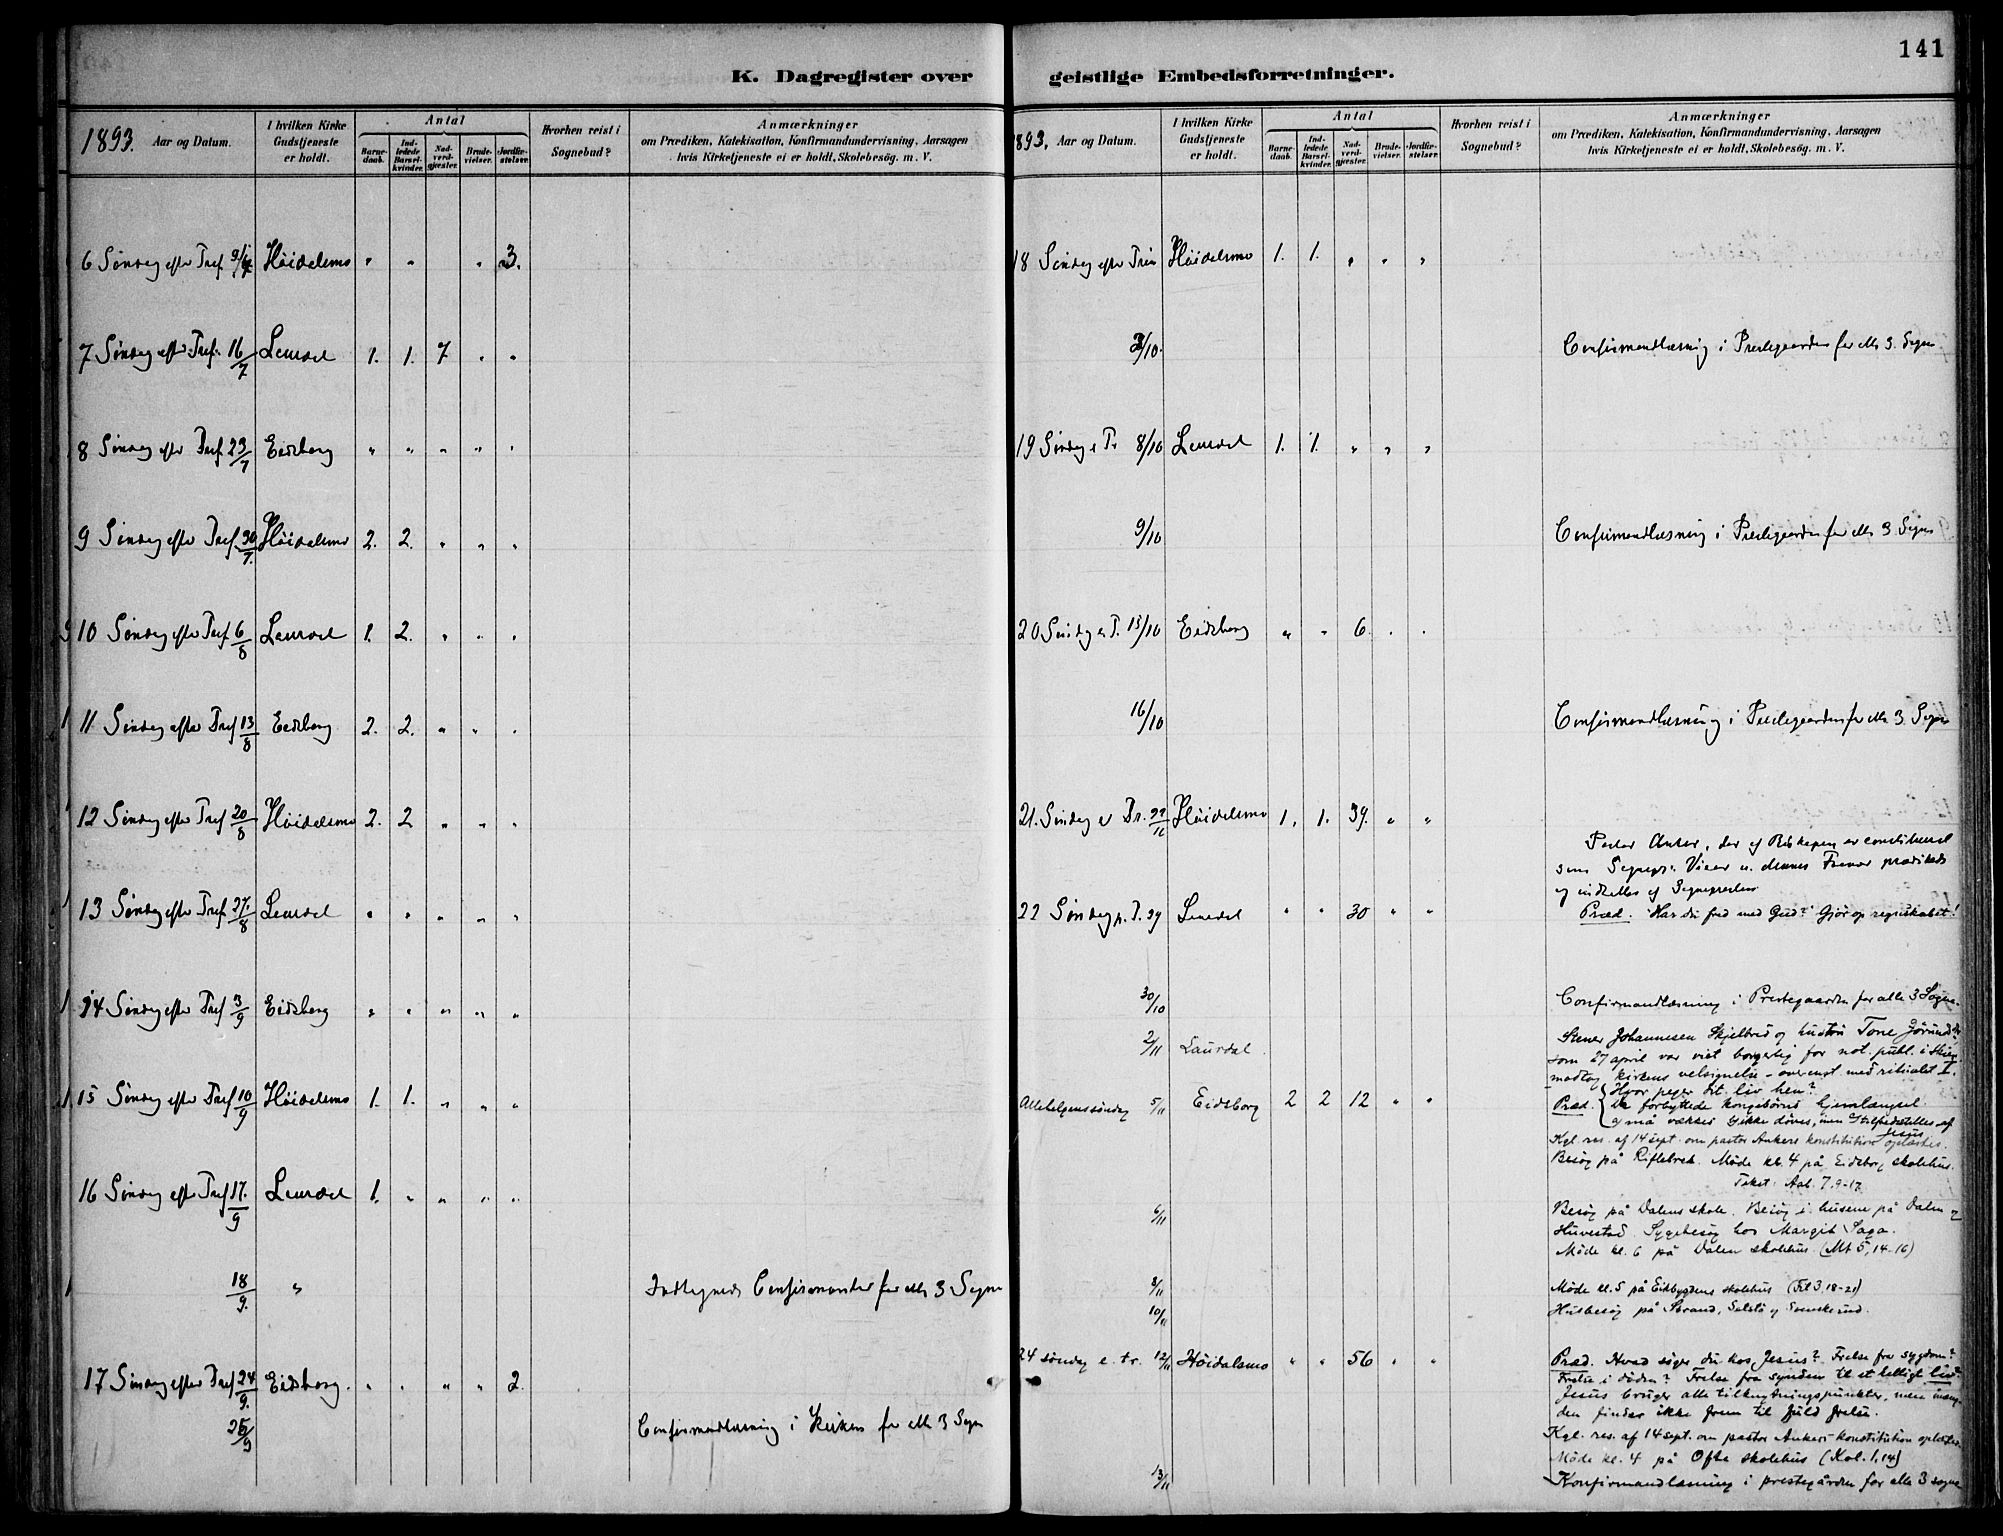 141
K. Dagregister over geistlige Embedsforretninger.
1893. Aar og Datum.
I hvilken Kirke Gudstjeneste er holdt.
Antal
Barnedaab.
Indledede Barselkvinder.
Nadverdgjester.
Brudevielser.
Jordfæstelser.
Hvorhen reist i Sognebud?
Anmærkninger
om Prædiken, Katekisation, Konfirmandundervisning, Aarsagen
hvis Kirketjeneste ei er holdt, Skolebesög. m. V.
6 Søndag efter Tref 9/7 Höidalsmo " " " 3.
7 Søndag efter Tref. 16/7 Laurdal 1. 1. 7 " "
8 Søndag efter Tref 23/7 Eidsborg " " " " "
9 Søndag efter Tref 30/7. Höidalsmo 2. 2. " " "
10 Søndag efter Tref 6/8 Laurdal 1. 2. " " "
11 Søndag efter Tref 13/8 Eidsborg 2. 2. " " "
12 Søndag efter Tref 20/8 Höidalsmo 2. 2 " " "
13 Søndag efter Tref 27./8 Laurdal " " " " "
14 Søndag efter Tref 3/9 Eidsborg " " " " "
15 Søndag efter Tref 10/9 Höidalsmo 1. 1. " " "
16 Søndag efter Tref 17./9 Laurdal 1. " " " "
18/9. " Indtegnede Confirmanter for alle 3 Sogne
17 Søndag efter Tref 24/9. Eidsborg. " " " " 2.
25/9 Confirmandlæsning i Kirken for alle 3 Sogn
1893. Aar og Datum.
I hvilken Kirke Gudstjeneste er holdt.
Antal
Barnedaab.
Indledede Barselkvinder.
Nadverdgjester.
Brudevielser.
Jordfæstelser.
Hvorhen reist i Sognebud?
Anmærkninger
om Prædiken, Katekisation, Konfirmandundervisning, Aarsagen
hvis Kirketjeneste ei er holdt, Skolebesög. m. V.
18 Søndag efter Trin Höidalsmo 1. 1. " " "
/10. Confirmandlæsning i Prestegaarden for alle 3. Sogne
19 Søndag e Tr 8/10 Laurdal 1. 1. " " "
9/10 Confirmandlæsning i Prestegaarden for alle 3 Sogne
20 Søndag e. T. 15/10 Eidsborg " " 6. " "
16/10 Confirmandlæsning i Prestegaarden for alle 3. Sogne
21. Søndag e Tr. 22/10 Höidalsmo 1. 1. 39. " "
Pastor Anker, der af Biskopen er constitueret
som Sognepr: Vicar u. dennes prædikede
og indsattes af Sognepresten
22 Søndag p. T. 29 Laurdal " " 30 " "
Præd. Har du fred med Gud? Gjör op regnskabet!
30/10 Confirmandlæsning i Prestegaarden for alle 3 Sogne.
2/11 Laurdal. Stener Johannesen Skjelbred og hustru Tone
som 27 april var viet borgerlig for not. publ. i Skien
modtog kirkens velsignelse – overenst med ritualet I.
Allehelgenssøndag 5/11 Eidsborg 2 2 12 " "
Præd. Hvor peger dit liv hen?
De forbyttede kongebørns hjemlængsel
må vækkes og ikke døves, men tilfredsstilles af Jesus
Kgl. res. af 14 sept. om pastor Ankers konstitution oplæstes.
Besøg på Riflebræk. Møde kl. 4 på Eidsborg skolehus.
Tekst: Aab. 7, 9-17
6/11 Besøg på Dalens skole. Besøg i husene på Dalen og
Huvestad. Sygebesøg hos Margit Saga.
Møde kl. 6 på Dalen skolehus. (Mt 5, 14-16)
8/11 Møde kl. 5 på Eikbygdens skolehus (Fil 3, 18-21)
10/11 Husbesøg på Strand,
24 søndag e. tr. 12/11 Höidalsmo " " 56 " "
Præd. Hvad søger du hos Jesus? Frelse fra sygdom?
Frelse i døden? Frelse fra synden til et helligt liv?
Jesus bruger alle tilknytningspunkter, men mang
den finder ikke frem til fuld frelse.
Kgl. res. af 14 sept. om pastor Ankers konstitution oplæstes
Møde kl. 4 på Ofte skolehus (Kol. 1, 14)
13/11 Konfirmandlæsning i prestegården for alle 3 sogne